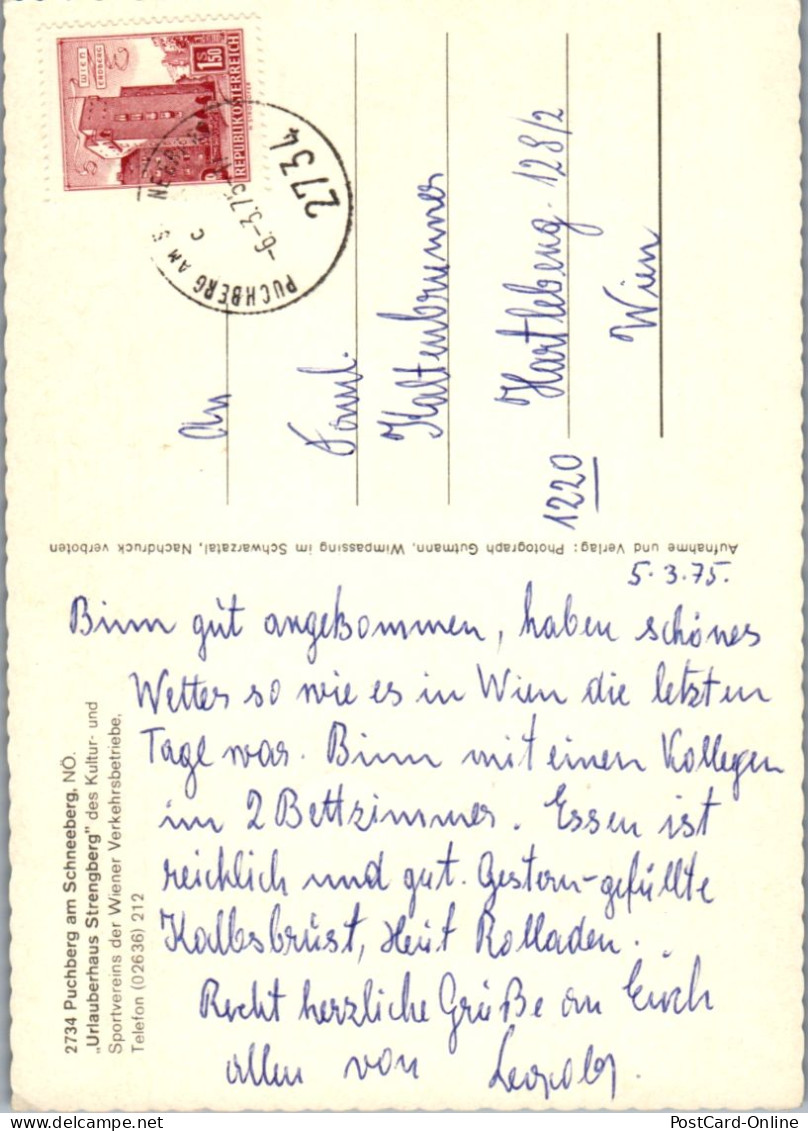 WIEN
ERDBERG
S 1.50
REPUBLIK ÖSTERREICH
PUCHBERG AM
-6.-3.75
C
2734
An
Faml.
Kaltenbrunner
Hartlebeng. 128/2
1220 Wien
Aufnahme und Verlag: Photograph Gutmann, Wimpassing im Schwarzatal, Nachdruck verboten
2734 Puchberg am Schneeberg, NÖ.
„Urlauberhaus Strengberg" des Kultur- und
Sportvereins der Wiener Verkehrsbetriebe,
Telefon (02636) 212
5.3.75.
Binn gut angekommen, haben schönes
Wetter so wie es in Wien die letzten
Tage war. Binn mit einen Kollegen
im 2 Bettzimmer. Essen ist
reichlich und gut. Gestern-gefüllte
Kalbsbrust, Heut Rolladen.
Recht herzliche Grüße an Euch
allen von Leopold.
PostCard-Online
PostCard-Online